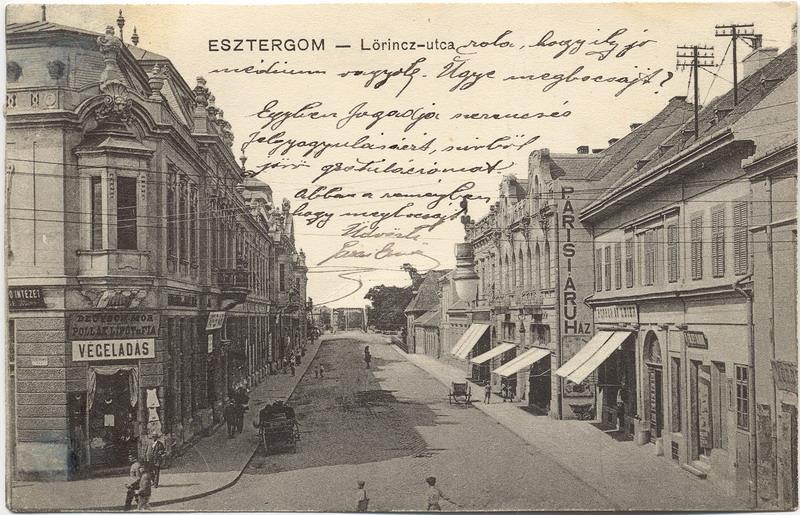 ESZTERGOM — Lőrincz-utca
róla, hogy ily jó
médium vagyok. Ugye megbocsájt?
Egyben fogadja szerencsés
felgyógyulásáért, szívből
jövő gratulációmat.
Abban a reményben
hogy megbocsájt
Üdvözli
DEUTSCH MÓR
POLLÁK LIPÓT és FIA
VÉGELADÁS
INTÉZET
PÁRISI ÁRUHÁZ